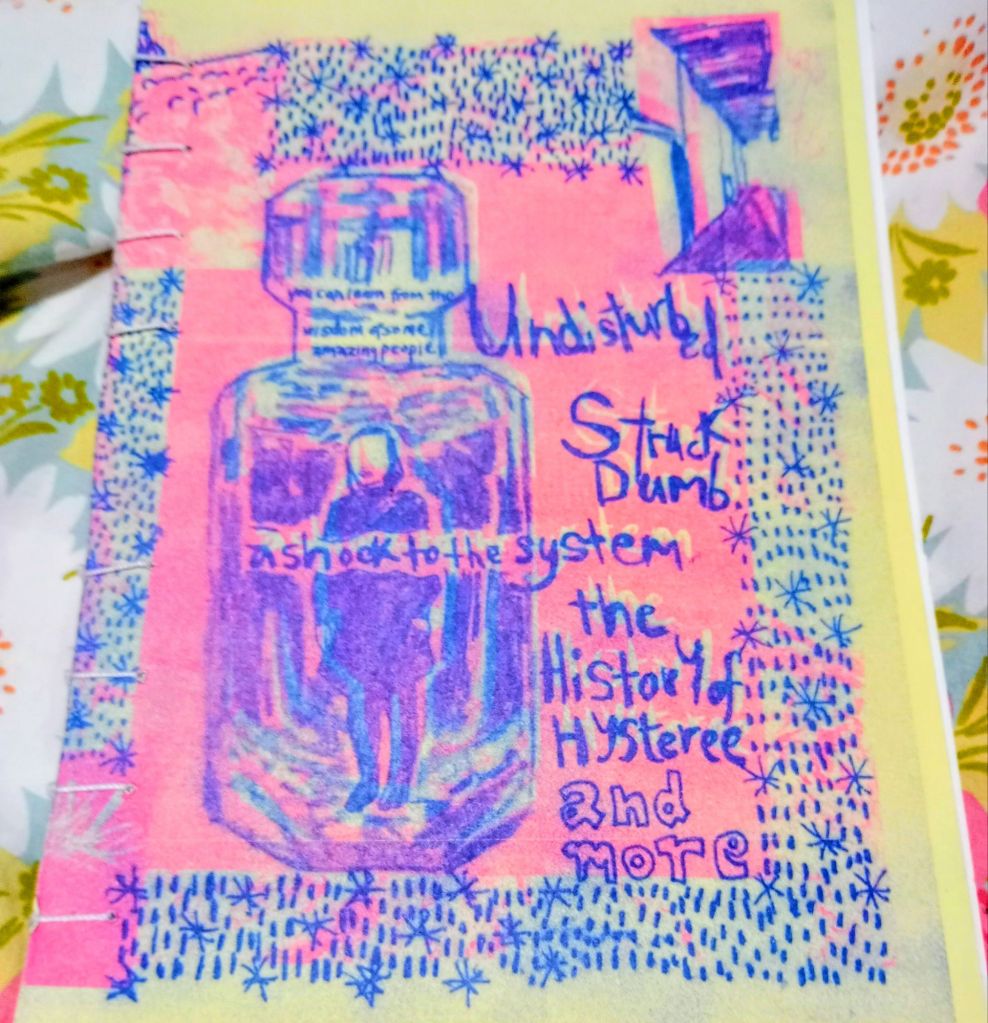 you can learn from the
wisdom of some
amazing people
Undisturbed
Struck
Dumb
a shock to the system
the
HistorY of
HYsteree
and
more